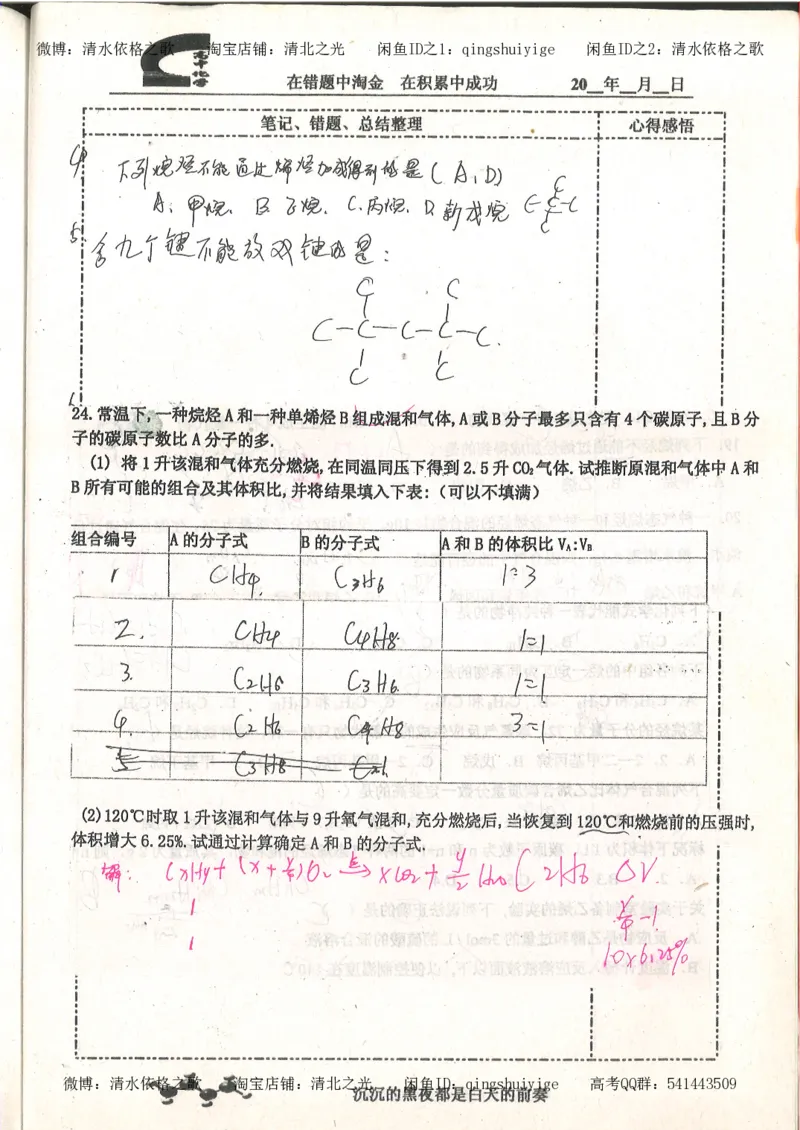 微博：清水依格之歌 淘宝店铺：清北之光 闲鱼ID之1：qingshuiyige 闲鱼ID之2：清水依格之歌
在错题中淘金 在积累中成功 20__年__月__日
笔记、错题、总结整理 心得感悟
下列烷烃不能通过烯烃加成得到的是(A、D)
A、甲烷、B、乙烷、C、丙烷、D、新戊烷
C
C-C-C
C
5、含九个键不能放双键的是：
C C
C-C-C-C-C.
C C
24.常温下,一种烷烃A和一种单烯烃B组成混和气体,A或B分子最多只含有4个碳原子,且B分
子的碳原子数比A分子的多.
(1) 将1升该混和气体充分燃烧,在同温同压下得到2.5升CO₂气体.试推断原混和气体中A和
B所有可能的组合及其体积比,并将结果填入下表:(可以不填满)
组合编号 A的分子式 B的分子式 A和B的体积比VA:VB
1 CH4. C3H6 1:3
2. CH4 C4H8 1:1
3. C2H6 C3H6 1:1
4. C2H6 C4H8 3:1
C3H8
(2)120℃时取1升该混和气体与9升氧气混和,充分燃烧后,当恢复到120℃和燃烧前的压强时,
体积增大6.25%.试通过计算确定A和B的分子式.
解: CxHy+(x+y/4)O2 点燃 xCO2+y/2 H2O C2H6 ΔV.
1 y/4-1
1 10×6.25%
微博：清水依格之歌 淘宝店铺：清北之光 闲鱼ID：qingshuiyige 高考QQ群：541443509
沉沉的黑夜都是白天的前奏